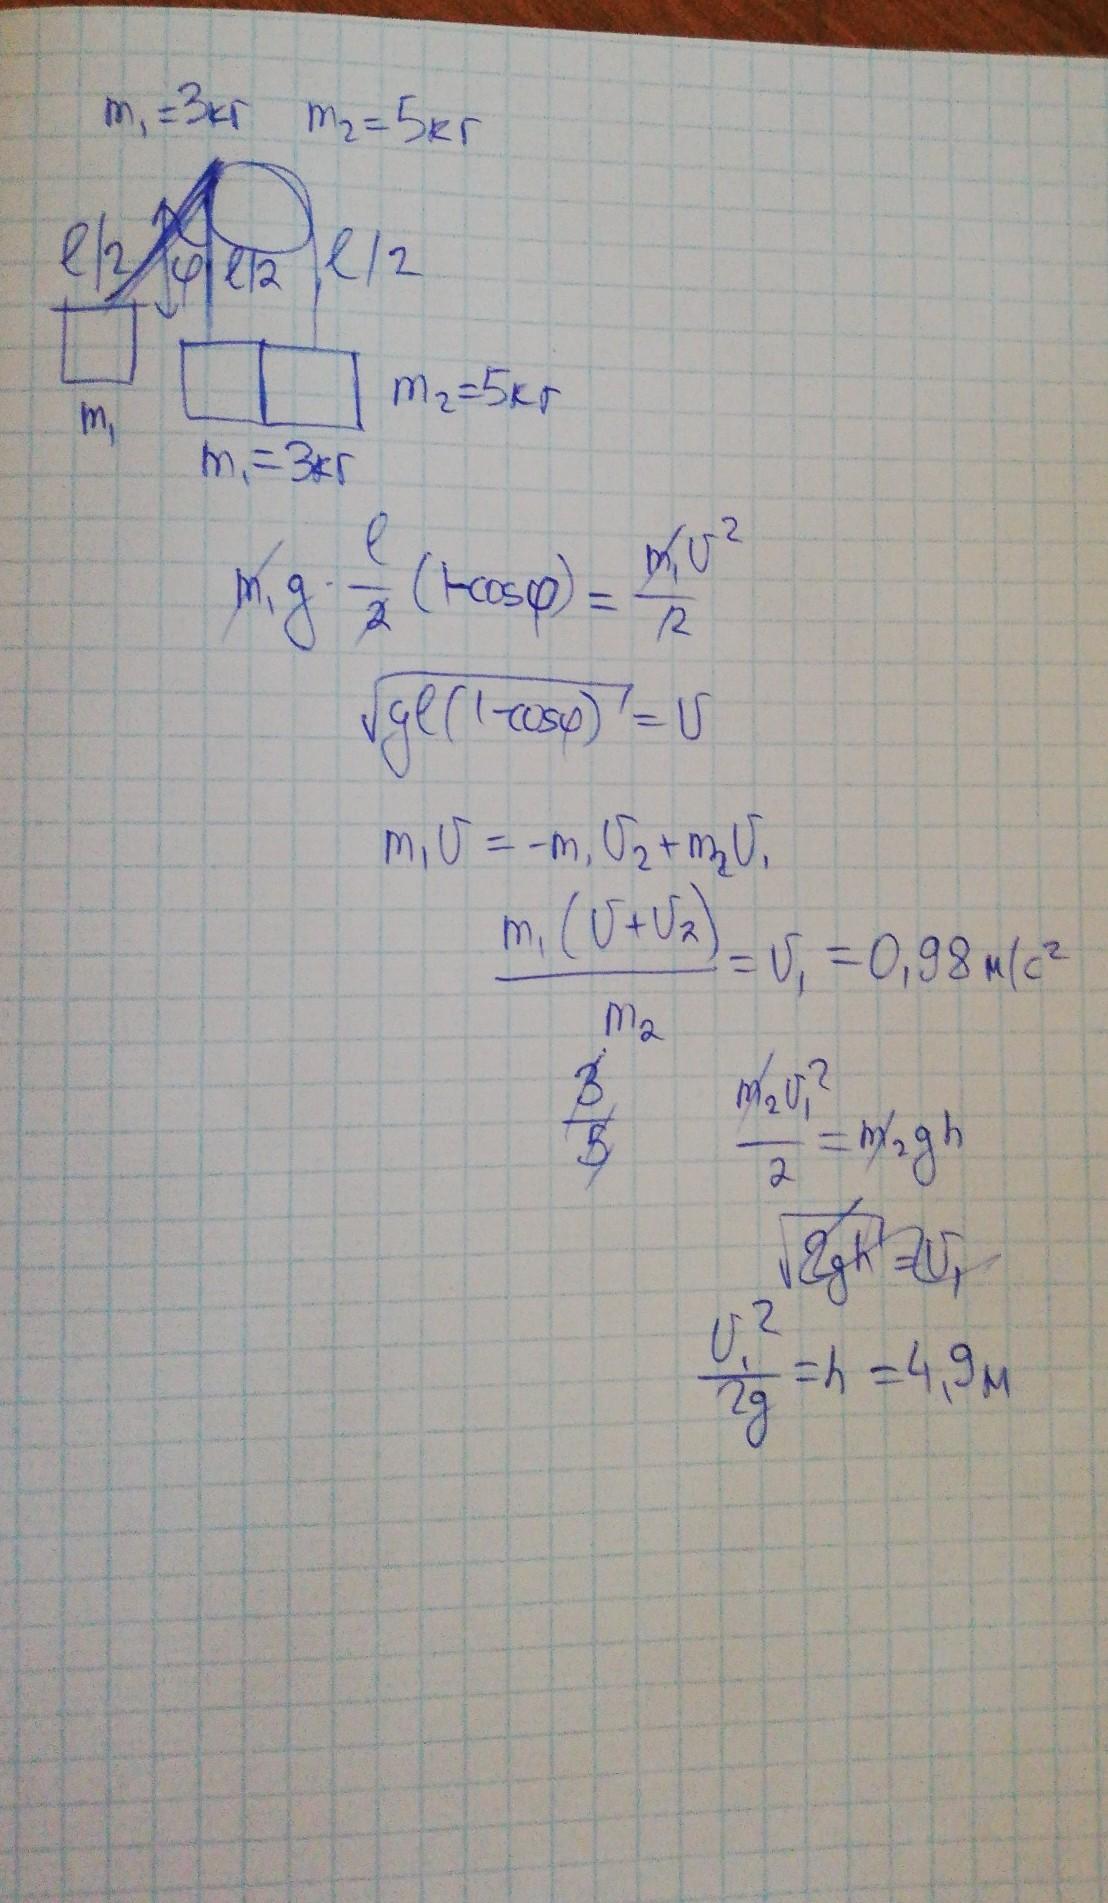 m₁=3кг m₂=5кг
l/2 φ l/2 l/2
m₁
m₂=5кг
m₁=3кг
m₁g · l/2 (1-cosφ) = m₁υ²/2
√gl(1-cosφ) = υ
m₁υ = -m₁υ₂+m₂υ₁
m₁(υ+υ₂)/m₂ = υ₁ = 0,98м/с²
3/5
m₂υ₁²/2 = m₂gh
√2gh = υ₁
υ₁²/2g = h = 4,9м